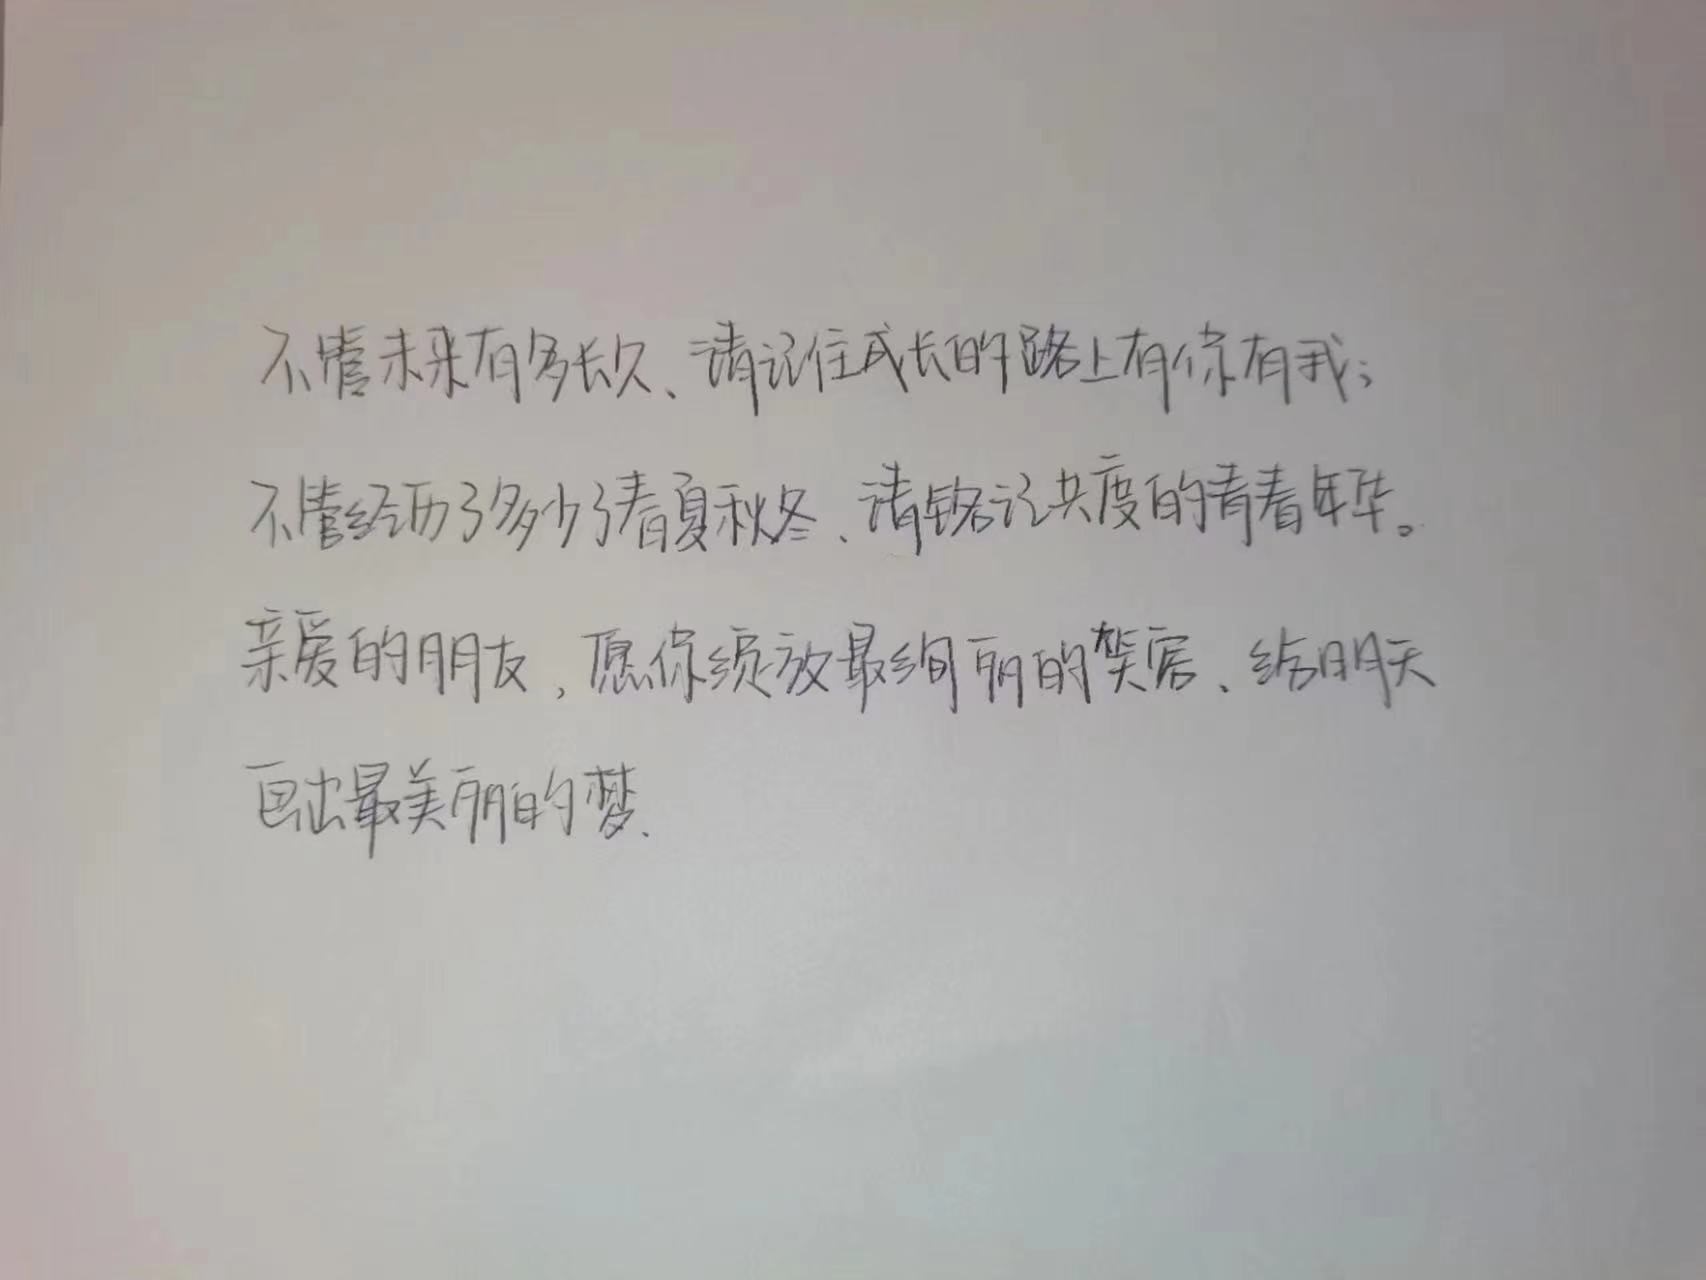 不管未来有多长久、请记住成长的路上有你有我;
不管经历了多少了春夏秋冬、请铭记共度的青春年华。
亲爱的朋友,愿你绽放最绚丽的笑容、给明天
画出最美丽的梦、